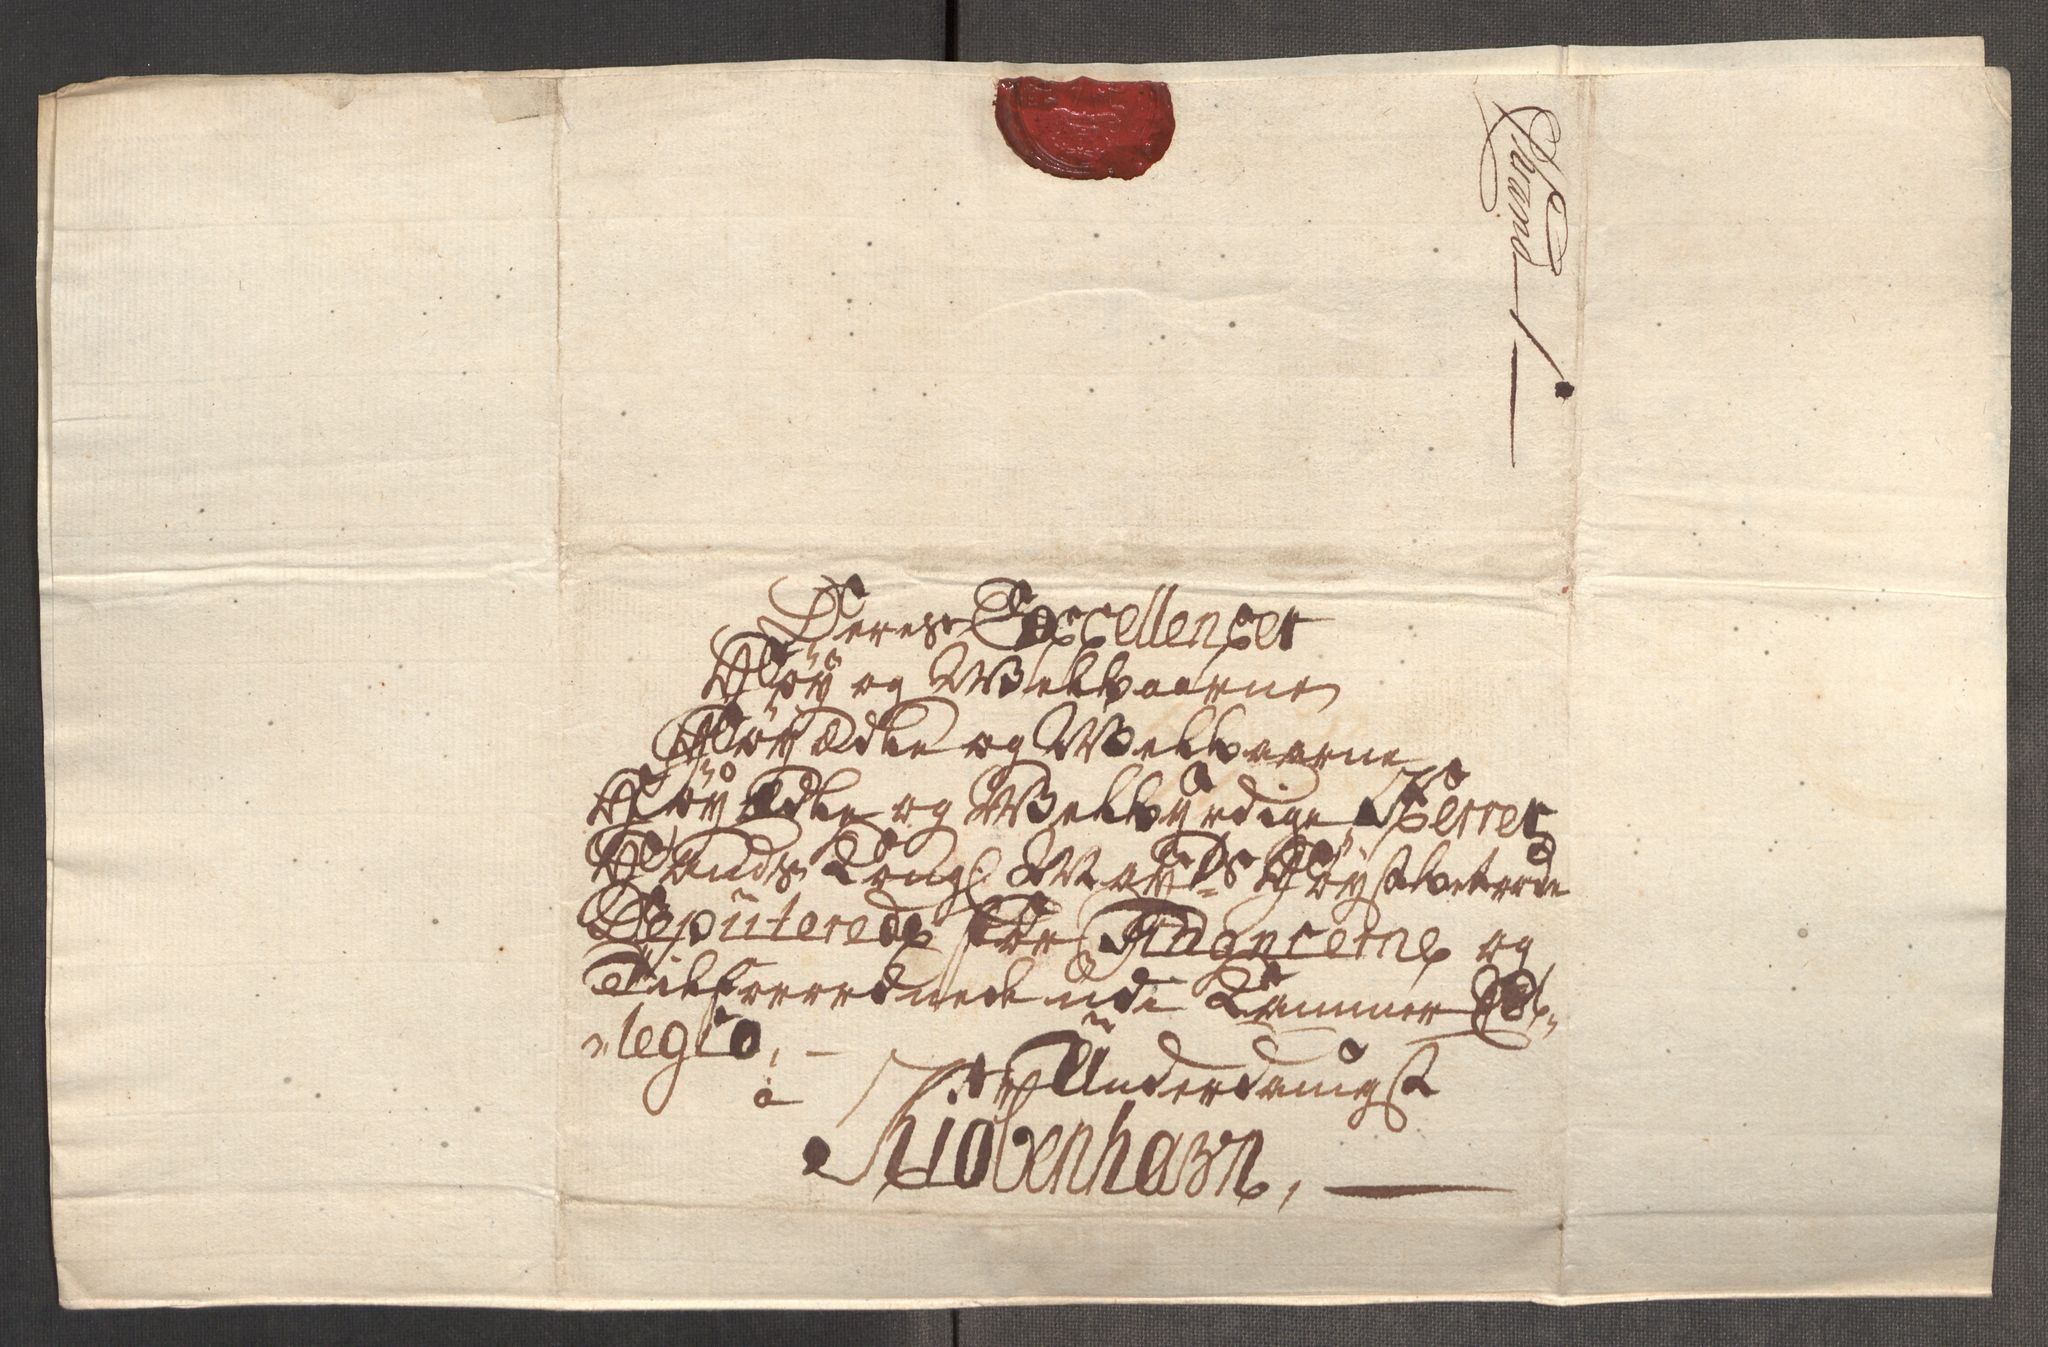 Deres Excellencer
Høy og Welbaarne
Høy Ædle og Welbaarne
Høy Ædle og Welbyrdige Herrer
Hands Kongl May:ts Høystbetroede
Deputerede for Financerne og
Tilforordnede udi Kammer Col„
„legio, —
Underdanigst
à
Kiøbenhavn, —